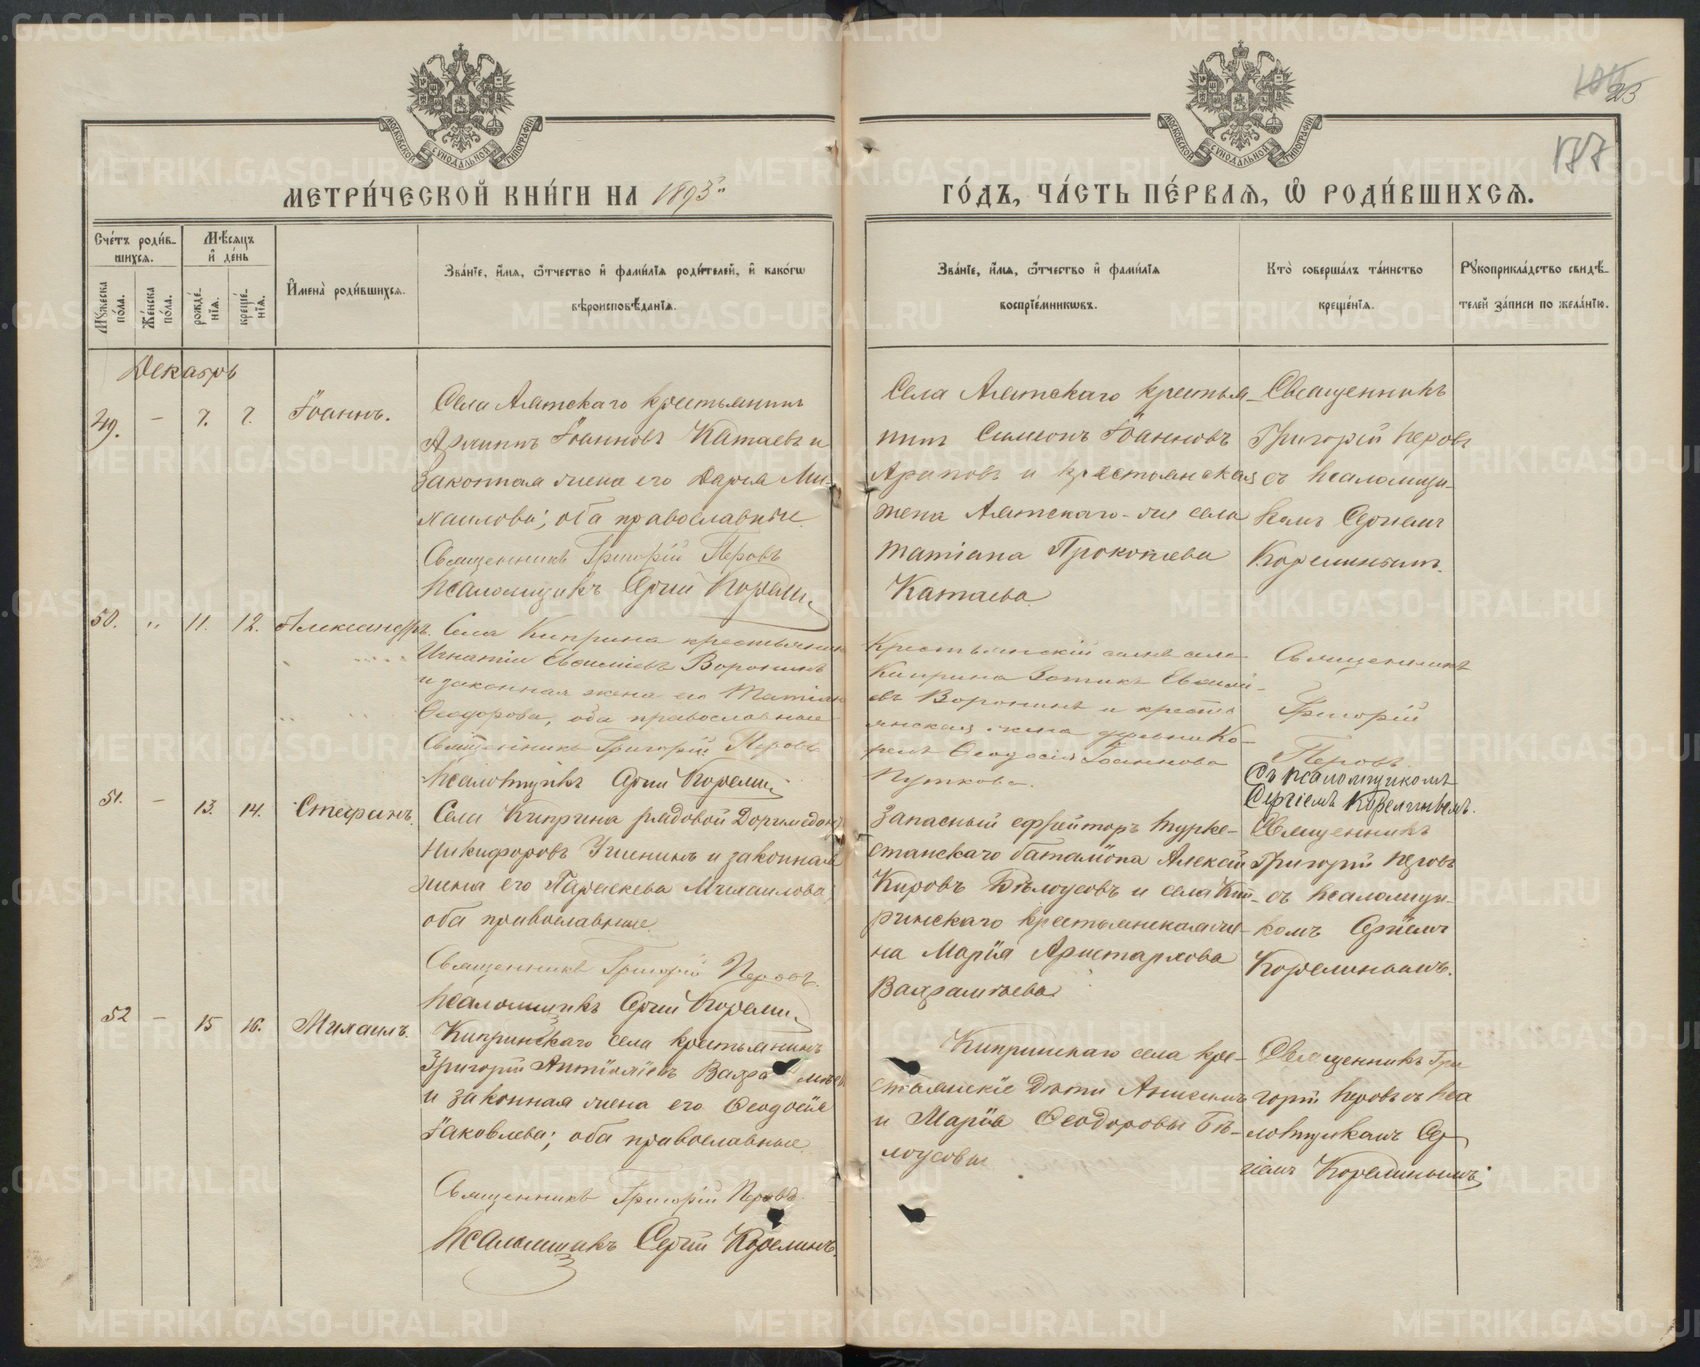 187
МОСКОВСКОЙ СѴНОДАЛЬНОЙ ТИПОГРАФІИ
МОСКОВСКОЙ СѴНОДАЛЬНОЙ ТИПОГРАФІИ
МЕТРИ́ЧЕСКОЙ КНИ́ГИ НА 1893
ГО́ДЪ, ЧА́СТЬ ПЕ́РВАѦ, Ѽ РОДИ́ВШИХСѦ.
Сче́тъ роди́в-
шихсѧ.
Мѣ́сѧцъ
и҆ де́нь
Мꙋ́жеска
по́ла.
Же́нска
по́ла.
рожде́-
нїѧ.
креще́-
нїѧ.
И҆мена̀ роди́вшихсѧ.
Зва́нїе, и҆́мѧ, ѻ҆́тчество и҆ фами́лїѧ роди́телей, и҆ како́гѡ
вѣроисповѣ́данїѧ.
Зва́нїе, и҆́мѧ, ѻ҆́тчество и҆ фами́лїѧ
воспрїе́мникѡвъ.
Кто̀ соверша́лъ та́инство
креще́нїѧ.
Рꙋкоприкла́дство свидѣ́-
телей за́писи по жела́нїю.
Декабрь
49. – 7. 7. Іоаннъ.
Села Аятскаго крестьянинъ
Іоанновъ Катаевъ и
законная жена его Дарья Ми-
хаилова; оба православные
Священникъ Григорій Перовъ
Псаломщикъ Сергій Корелин
Села Аятскаго крестья-
нинъ Симеонъ Іоанновъ
Араповъ и крестьянская
жена Аятскаго-же села
Татіана Прокопіева
Катаева
Священникъ
Григорій Перовъ
съ псаломщи-
комъ Сергіемъ
Корелинымъ.
50. " 11. 12. Александръ.
Села Киприна крестьянин
Игнатій Евсиміевъ Воронинъ
и законная жена его Татіан
Ѳеодорова, оба православные
Священникъ Григорій Перовъ
Псаломщикъ Сергій Корелин
Крестьянскій сынъ села
Киприна Зотикъ Евсимі-
евъ Воронинъ и кресть
янская жена деревни Ко-
релъ Ѳеодосія Іоаннова
Пупкова.
Священникъ
Григорій
Перовъ.
Съ псаломщикомъ
Сергіемъ Корелинымъ.
51. – 13. 14. Стефанъ.
Села Киприна рядовой Доримедон
Никифоровъ Ушенинъ и законная
жена его Параскева Михаилова;
оба православные
Священникъ Григорій Перовъ.
Псаломщикъ Сергій Корелин
Запасный ефрейторъ Турке-
станскаго баталіона Алексѣй
Кировъ Бѣлоусовъ и села Кип-
ринскаго крестьянская же-
на Марія Аристархова
Вахрамѣева
Священникъ
Григорій Перовъ
съ псаломщи-
комъ Сергіемъ
Корелинымъ.
52 – 15 16. Михаилъ.
Кипринскаго села крестьянинъ
Григорій Вахрамѣев
и законная жена его Ѳеодосія
Іаковлева; оба православные
Священникъ Григорій Перовъ.
Псаломщикъ Сергій Корелинъ.
Кипринскаго села кре-
стьянскіе дѣти Анисимъ
и Марія Ѳеодоровы Бѣ-
лоусовы
Священникъ Гри
горій Перовъ съ пса
ломщикамъ Сер
гіемъ Корелинымъ;
METRIKI.GASO-URAL.RU